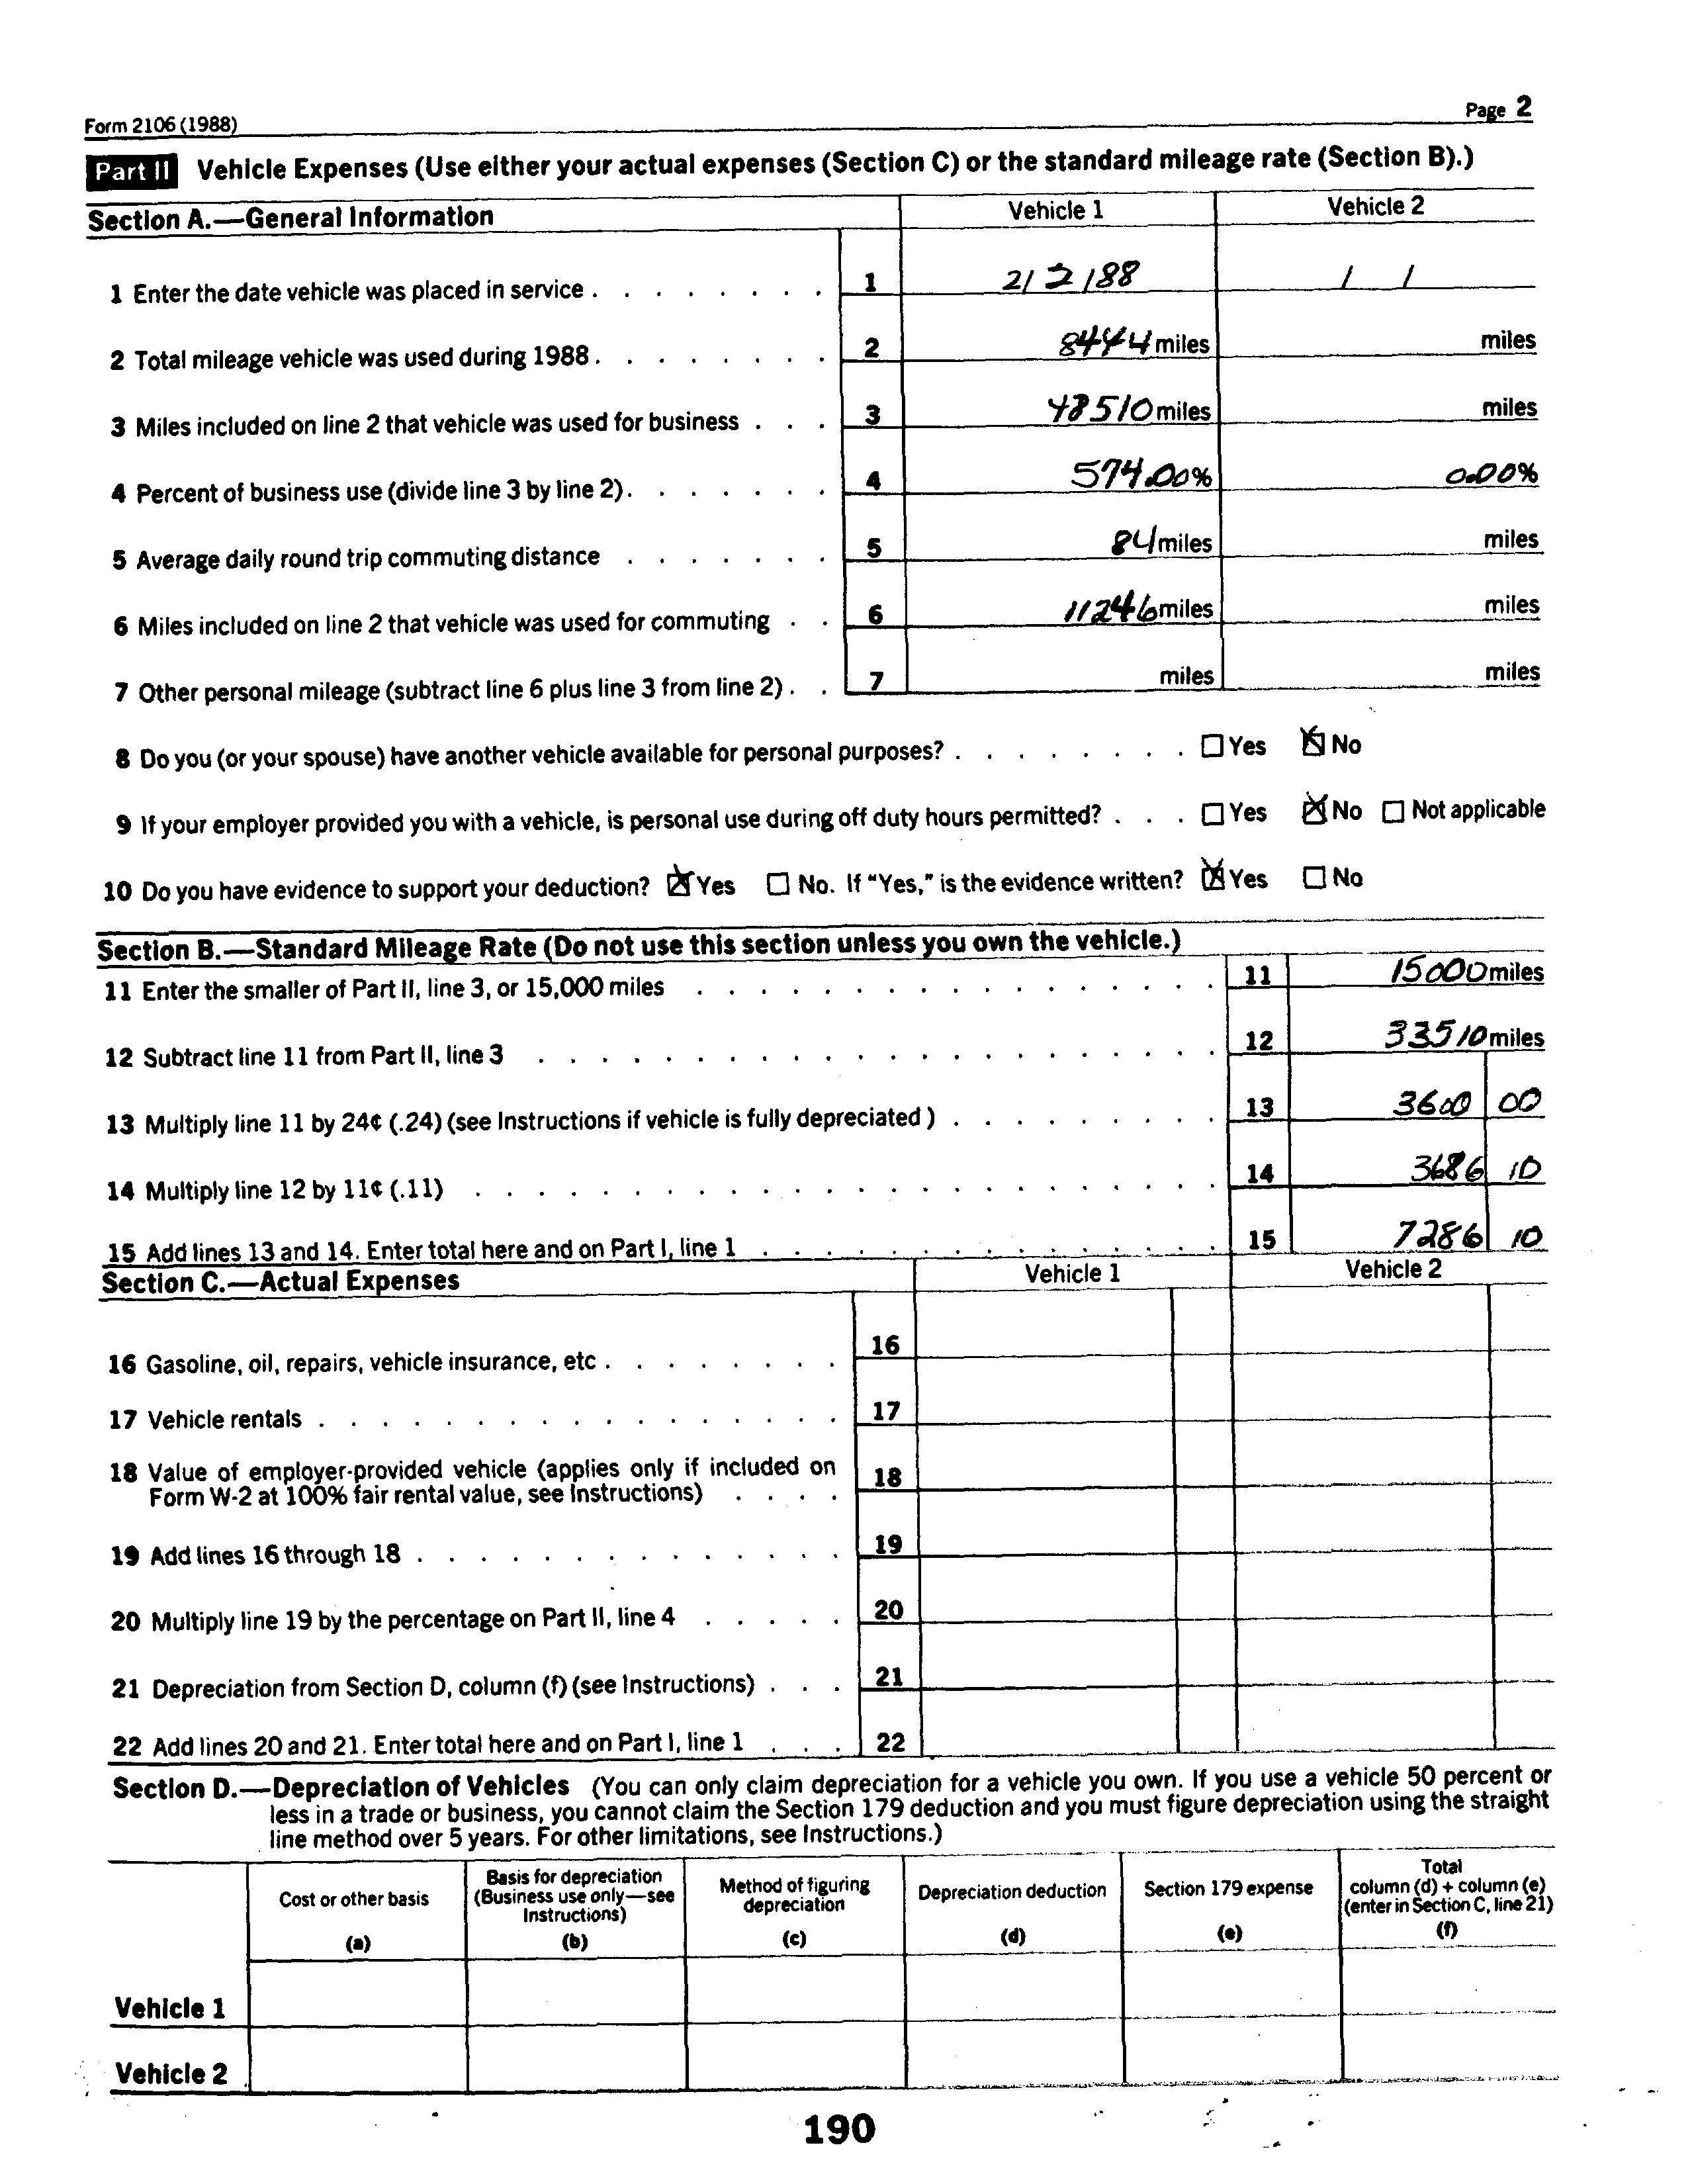 Form 2106 (1988) Page 2
Part II Vehicle Expenses (Use either your actual expenses (Section C) or the standard mileage rate (Section B).)
Section A.—General Information Vehicle 1 Vehicle 2
1 Enter the date vehicle was placed in service . . . . . . . . 1 2/ 2 /88 / /
2 Total mileage vehicle was used during 1988 . . . . . . . . 2 8444 miles miles
3 Miles included on line 2 that vehicle was used for business . . . 3 48510 miles miles
4 Percent of business use (divide line 3 by line 2) . . . . . . . 4 574.00% 0.00%
5 Average daily round trip commuting distance . . . . . . . 5 84 miles miles
6 Miles included on line 2 that vehicle was used for commuting . . 6 11246 miles miles
7 Other personal mileage (subtract line 6 plus line 3 from line 2) . . 7 miles miles
8 Do you (or your spouse) have another vehicle available for personal purposes? . . . . . . . . ☐ Yes ☒ No
9 If your employer provided you with a vehicle, is personal use during off duty hours permitted? . . . ☐ Yes ☒ No ☐ Not applicable
10 Do you have evidence to support your deduction? ☒ Yes ☐ No. If "Yes," is the evidence written? ☒ Yes ☐ No
Section B.—Standard Mileage Rate (Do not use this section unless you own the vehicle.)
11 Enter the smaller of Part II, line 3, or 15,000 miles . . . . . . . . . . . . . . . . . 11 15000 miles
12 Subtract line 11 from Part II, line 3 . . . . . . . . . . . . . . . . . . . . . . 12 33510 miles
13 Multiply line 11 by 24¢ (.24) (see Instructions if vehicle is fully depreciated ) . . . . . . . . . 13 3600 00
14 Multiply line 12 by 11¢ (.11) . . . . . . . . . . . . . . . . . . . . . . . . 14 3686 10
15 Add lines 13 and 14. Enter total here and on Part I, line 1 . . . . . . . . . . . . . . . 15 7286 10
Section C.—Actual Expenses Vehicle 1 Vehicle 2
16 Gasoline, oil, repairs, vehicle insurance, etc . . . . . . . . 16
17 Vehicle rentals . . . . . . . . . . . . . . . . . 17
18 Value of employer-provided vehicle (applies only if included on
Form W-2 at 100% fair rental value, see Instructions) . . . . 18
19 Add lines 16 through 18 . . . . . . . . . . . . . . 19
20 Multiply line 19 by the percentage on Part II, line 4 . . . . . 20
21 Depreciation from Section D, column (f) (see Instructions) . . . 21
22 Add lines 20 and 21. Enter total here and on Part I, line 1 . . . 22
Section D.—Depreciation of Vehicles (You can only claim depreciation for a vehicle you own. If you use a vehicle 50 percent or
less in a trade or business, you cannot claim the Section 179 deduction and you must figure depreciation using the straight
line method over 5 years. For other limitations, see Instructions.)
Cost or other basis
(a)
Basis for depreciation
(Business use only—see
Instructions)
(b)
Method of figuring
depreciation
(c)
Depreciation deduction
(d)
Section 179 expense
(e)
Total
column (d) + column (e)
(enter in Section C, line 21)
(f)
Vehicle 1
Vehicle 2
190